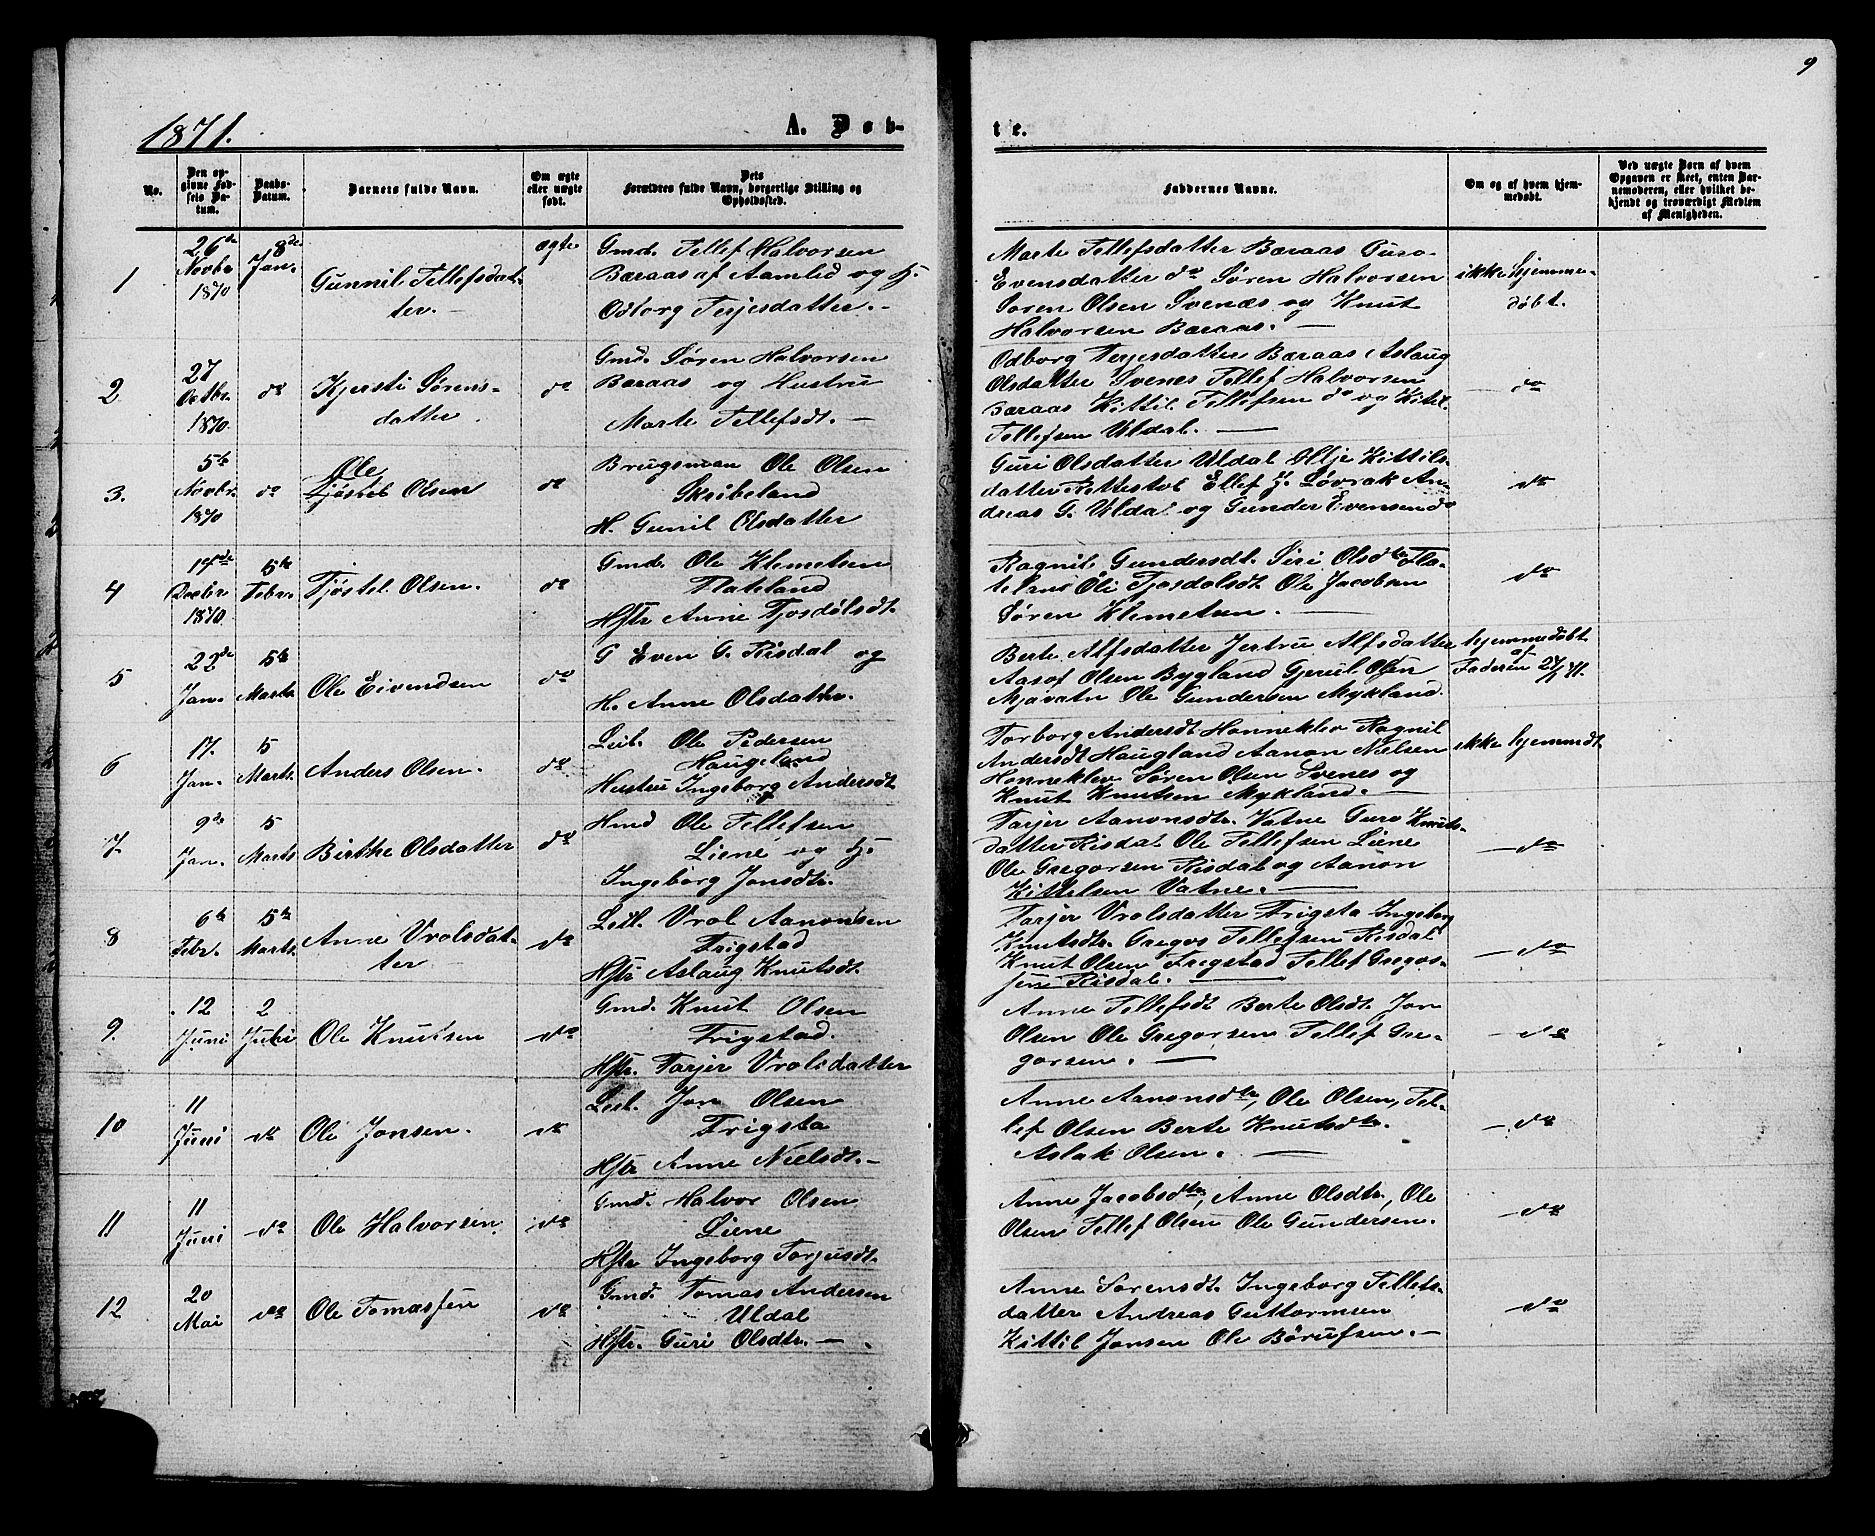 9
1871.
A. Døb-
te.
No.
Den op-
givne Fød-
sels Da-
tum.
Daabs-
Datum.
Barnets fulde Navn.
Om ægte
eller uægte
født.
Dets
Forældres fulde Navn, borgerlige Stilling og
Opholdssted.
Faddernes Navne.
Om og af hvem hjem-
medøbt.
Ved uægte Barn af hvem
Opgaven er skeet, enten Bar-
nemoderen, eller hvilket be-
kjendt og troværdigt Medlem
af Menigheden.
1
26de
Novbr
1870
8de
Jan.
Gunnil Tellefsdat-
ter. —
ægte
Gmd. Tellef Halvorsen
Baraas af Aamlid og H.
Odborg Terjesdatter. —
Marte Tellefsdatter Baraas Guro
Evensdatter do Søren Halvorsen
Soren Olsen Svenæs og Knut
Halvorsen Baraas. —
ikke hjemme-
døbt.
2
27
Octbr.
1870.
do
Kjersti Sørens-
datter
do
Gmd. Søren Halvorsen
Baraas og Hustru
Marte Tellefsdt. —
Odborg Terjesdatter Baraas Aslaug
Olsdatter Svenes Tellef Halvorsen
Baraas Kittil Tellefsen do og Kittil
Tellefsen Uldal. —
— do
3.
5te
Novbr.
1870
do
Ole
Tjøstel Olsen
do
Brugsman Ole Olsen
Skribeland
H. Gunil Olsdatter
Guri Olsdatter Uldal Kittils-
datter Ellef H. Løvrak An-
dreas G. Uldal og Gunder Evensen do
do
4
17de
Decbr
1870.
5te
Febr.
Tjøstel Olsen.
do
Gmd. Ole Klemetsen
Flateland
Hstr Anne Tjosdølsdt.
Ragnil Gundersdt. Siri Olsdtr Fla-
telans Ole Jacobsen
Søren Klemetsen. —
do
5
22de
Jan.
5te
Marts
Ole Eivendsen
do
G Even G. Risdal og
H. Anne Olsdatter.
Berte Alfsdatter Jertru Alfsdatter
Aasof Olsen Bygland Gjerul Olsen
Mjavatn Ole Gundersen Mykland.
hjemmedøbt
af
Faderen
6
17.
Jan.
5
Marts
Anders Olsen.
do
Leil. Ole Pedersen
Haugeland
Hustru Ingeborg Andersdt
Torborg Andersdt Honneklev Ragnil
Andersdt Haugland Aanon Nielsen
Honneklev Søren Olsen Svenes og
Knut Knutsen Mykland. —
ikke hjemmdt.
7.
9de
Jan.
5
Marts
Birthe Olsdatter
do
Hmd Ole Tellefsen
Liene og H.
Ingeborg Jonsdt.
Tarjer Aanonsdtr. Vatne Guro Knuts-
datter Risdal Ole Tellefsen Liene
Ole Gregorsen Risdal og Aanon
Kittelsen Vatne. —
— do
8
6te
Febr.
5te
Marts.
Anne Vrolsdat-
ter
do
Leil. Vrol Aanonsen
Frigstad
Hstr Aslaug Knutsdt.
Tarjer Vrolsdatter Frigsta Ingeborg
Knutsdtr. Gregos Tellefsen Risdal
Knut Olsen Frigstad Tellef Gregos-
sen Risdal. —
— do
9.
12
Juni
2
Juli
Ole Knutsen
do
Gmd. Knut Olsen
Frigstad.
Hstr. Tarjer Vrolsdatter
Anne Tellefsdt Berte Olsdt. Jon
Olsen Ole Gregorsen Tellef Gre-
gorsen. —
— do
10
11
Juni
do
Ole Jonsen.
do
Leil. Jon Olsen
Frigsta
Hstr Anne Nielsdt. —
Anne Aanonsdtr, Ole Olsen, Tel-
lef Olsen Berte Knutsdtr.
Aslak Olsen. —
— do
11
11
Juni
do
Ole Halvorsen
do
Gmd. Halvor Olsen
Liene
Hstr Ingeborg Torjusdt.
Anne Jacobsdtr, Anne Olsdtr, Ole
Olsen Tellef Olsen Ole Gundersen.
— do
12
20
Mai
do
Ole Tomassen
do
Gmd. Tomas Andersen
Uldal
Hstr. Guri Olsdtr. —
Anne Sorensdt. Ingeborg Tellefs-
datter Andreas Guttormsen
Kittil Jonsen Ole Børufsen. —
do